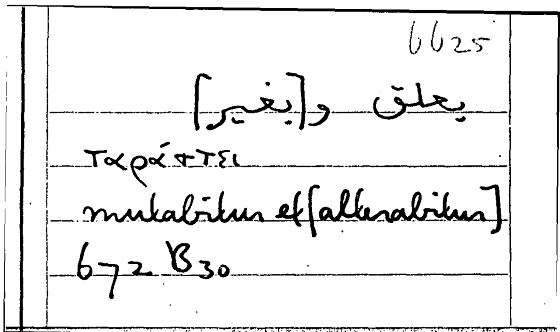 6625
يعلق و[يغير]
ταράττει
mutabitur et [alterabitur]
672 B 30